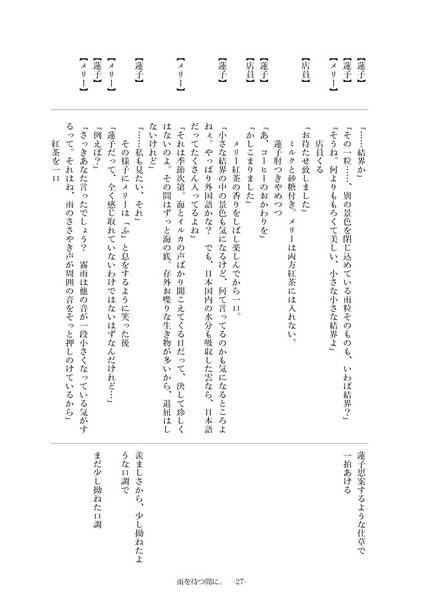 【蓮子】「……結界か」 蓮子思案するような仕草で
【蓮子】「その一粒……、別の景色を閉じ込めている雨粒そのものも、いわば結界？」 一拍あける
【メリー】「そうね。何よりももろくて美しい、小さな小さな結界よ」
店員くる
【店員】「お待たせ致しました」
ミルクと砂糖付き。メリーは両方紅茶には入れない。
蓮子肘つきやめつつ
【蓮子】「あ、コーヒーのおかわりを」
【店員】「かしこまりました」
メリー紅茶の香りをしばし楽しんでから一口。
【蓮子】「小さな結界の中の景色も気になるけど、何て言ってるのかも気になるところよ
ねぇ。やっぱり外国語かな？ でも、日本国内の水分も吸収した雲なら、日本語
だってたくさん入ってるよね」
【メリー】「それは季節次第。海とイルカの声ばかり聞こえてくる日だって、決して珍しく
はないのよ。その間はずっと海の底。存外お喋りな生き物が多いから、退屈はし
ないけれど」
【蓮子】「……私も見たい、それ」 羨ましさから、少し拗ねたよ
その様子にメリーは「ふ」と息をするように笑った後 うな口調で
【メリー】「蓮子だって、全く感じ取れていないわけではないはずなんだけれど…」
【蓮子】「例えば？」 まだ少し拗ねた口調
【メリー】「さっきあなた言ったでしょう？ 霧雨は他の音が一段小さくなっている気がす
るって。それはね、雨のささやき声が周囲の音をそっと押しのけているから」
紅茶を一口
雨を待つ間に。 -27-